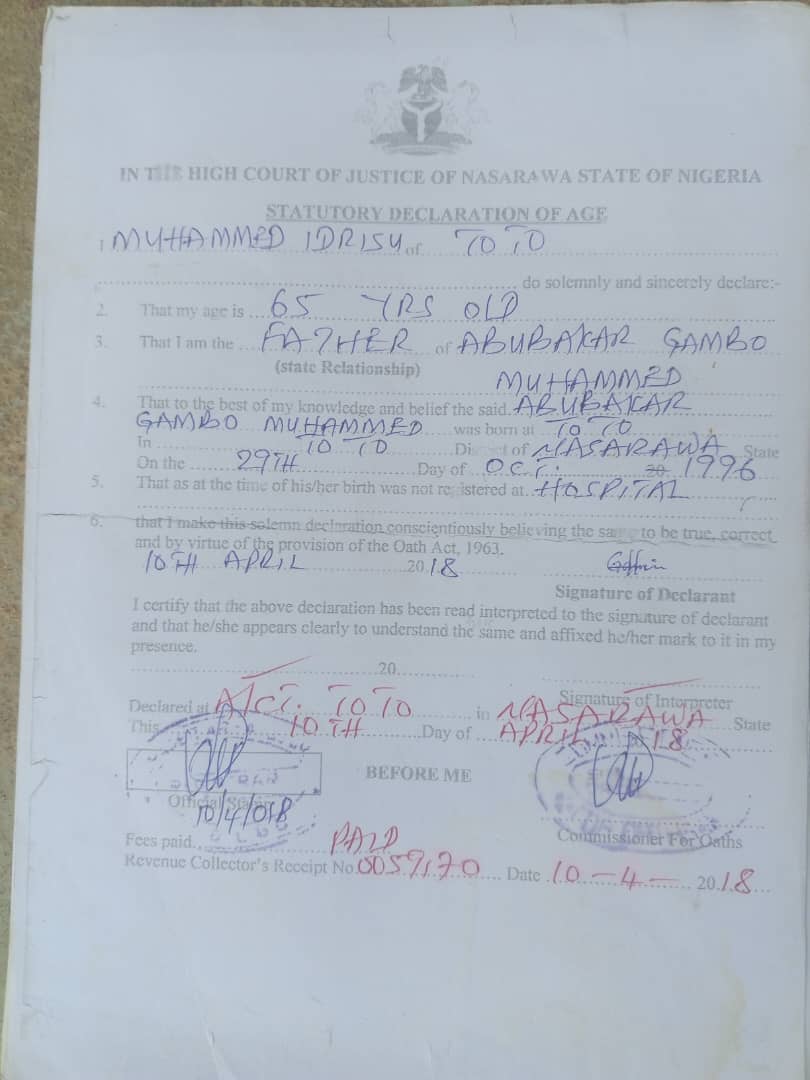 IN THE HIGH COURT OF JUSTICE OF NASARAWA STATE OF NIGERIA
STATUTORY DECLARATION OF AGE
I MUHAMMED IDRISU of TOTO
do solemnly and sincerely declare:-
2. That my age is 65 YRS OLD
3. That I am the FATHER of ABUBAKAR GAMBO
(state Relationship) MUHAMMED
4. That to the best of my knowledge and belief the said ABUBAKAR
GAMBO MUHAMMED was born at TOTO
In TOTO District of NASARAWA State
On the 29TH Day of OCT. 20 1996
5. That as at the time of his/her birth was not registered at HOSPITAL
6. that I make this solemn declaration conscientiously believing the same to be true, correct
and by virtue of the provision of the Oath Act, 1963.
10TH APRIL 2018
Signature of Declarant
I certify that the above declaration has been read interpreted to the signature of declarant
and that he/she appears clearly to understand the same and affixed he/her mark to it in my
presence.
20
Signature of Interpreter
Declared at TOTO in NASARAWA State
This 10TH Day of APRIL 2018
BEFORE ME
Official Stamp
10/4/018
Commissioner For Oaths
Fees paid PAID
Revenue Collector's Receipt No. 0059170 Date 10-4- 2018